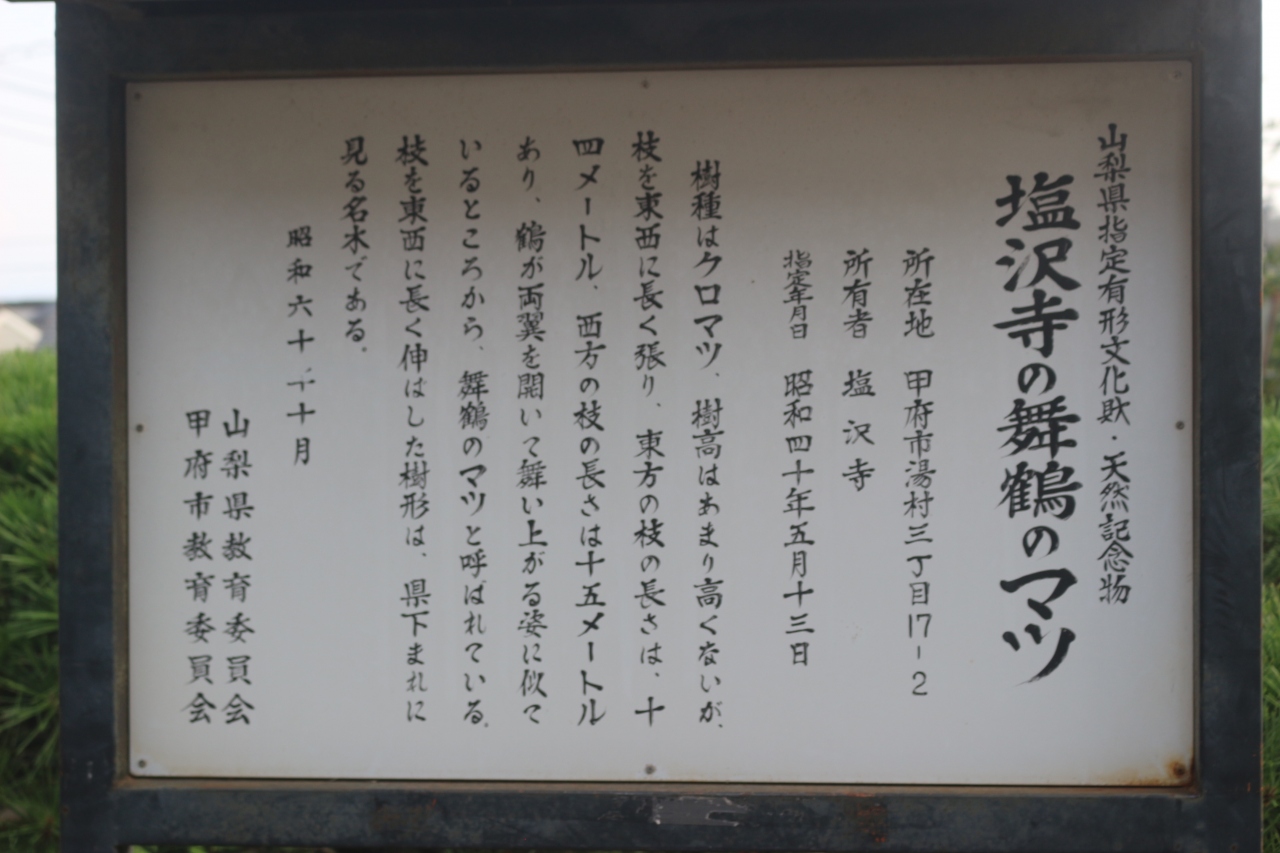 山梨県指定有形文化財・天然記念物
塩沢寺の舞鶴のマツ
所在地 甲府市湯村三丁目17-2
所有者 塩沢寺
指定年月日 昭和四十年五月十三日
樹種はクロマツ、樹高はあまり高くないが、
枝を東西に長く張り、東方の枝の長さは、十
四メートル、西方の枝の長さは十五メートル
あり、鶴が両翼を開いて舞い上がる姿に似て
いるところから、舞鶴のマツと呼ばれている。
枝を東西に長く伸ばした樹形は、県下まれに
見る名木である。
昭和六十年十月
山梨県教育委員会
甲府市教育委員会